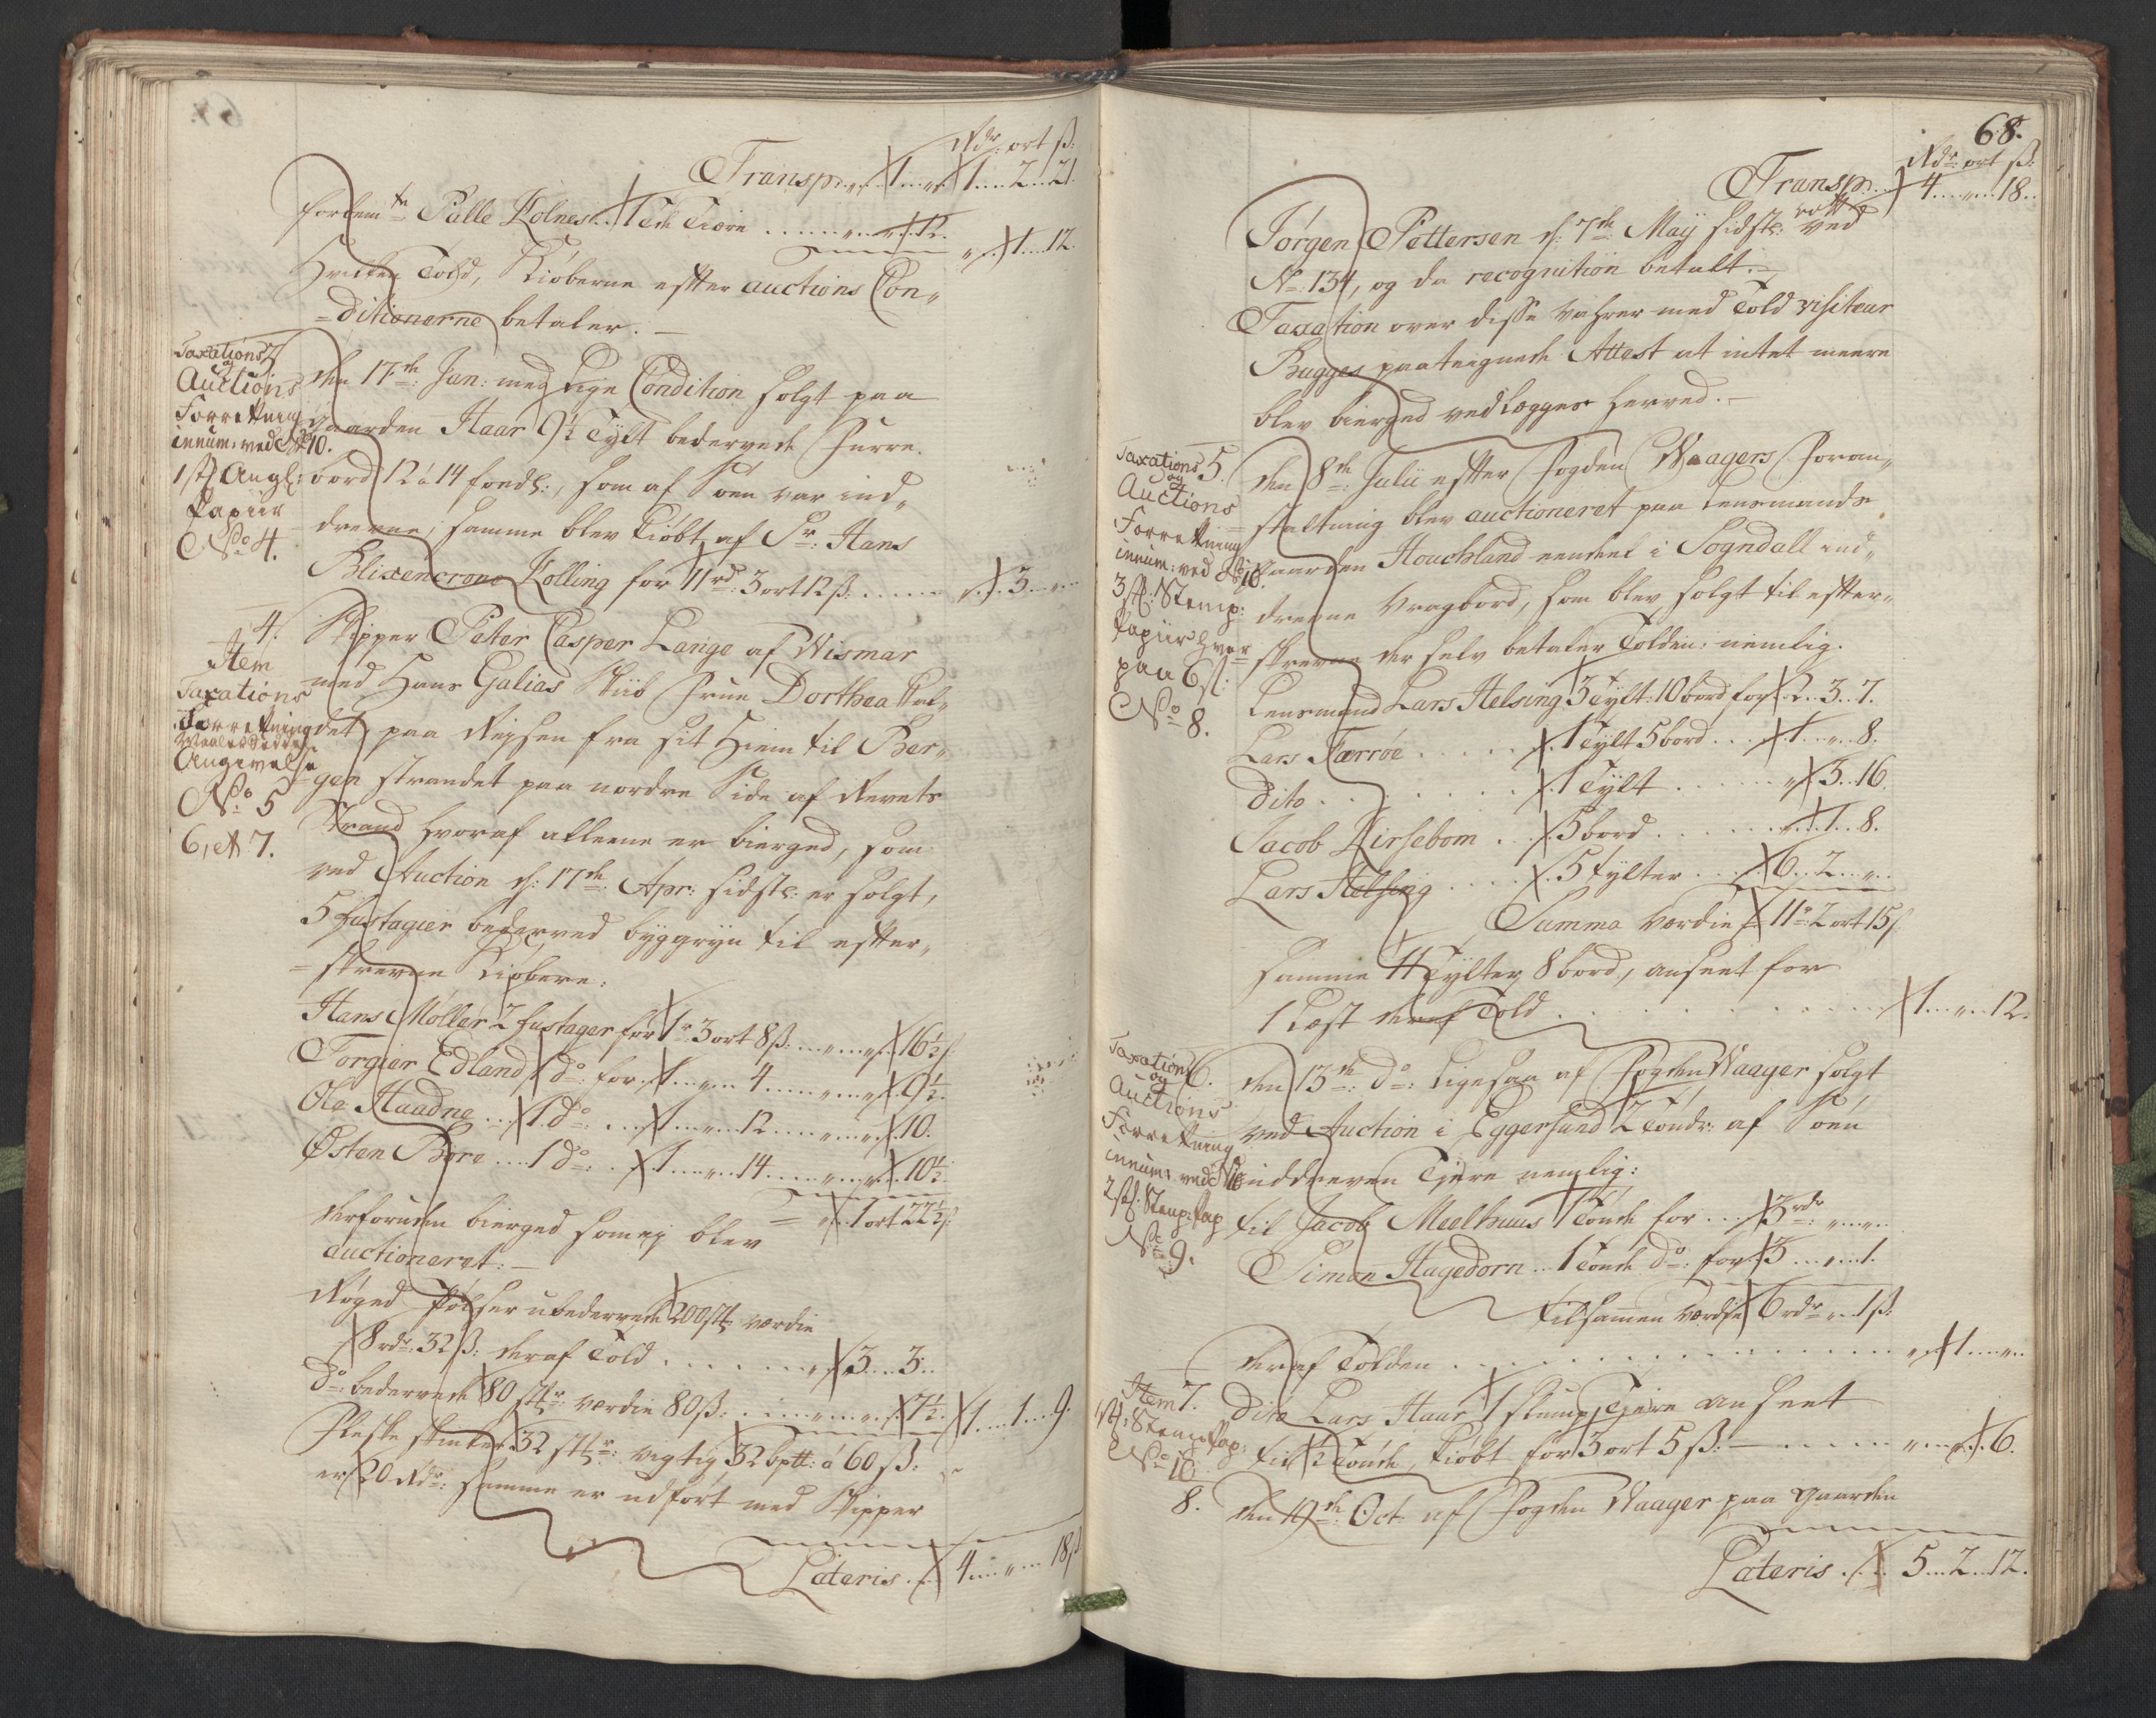 Rdr: ort ß:
Transp. 1 " 1 .. 2 .. 21.
fordem Palle Kolnes .. 1 Tde Tiære ...... " . 12.
" 1 .. 12.
Hvilken Told, Kiøberne efter auctions Con„
„ditionerne betaler. –
Taxations
og
Auctions
Forretning
innum: ved No 10.
1 st Angl:
Papiir
No 4.
den 17de Jun: med lige Condition solgt paa
Gaarden Haar 9½ Tylt bedervede Furre
bord 12 à 14 fods:, som af Søen var ind„
drevne, samme blev Kiøbt af Sr: Hans
Blixencrone Kolling for 11 rd 3 ort 12 ß: ..... " . 3 .. "
4.
Item
Taxations
Forretning
Angivelse
No 5
6, et 7.
Skipper Peter Casper Lange af Wismar
med Hans Galias Skiib Frue Dorthea Kal„
det paa Reysen fra sit Hiem til Ber„
„gen strandet paa nordre Side af Revets
Strand hvoraf alleene er bierged, som
ved Auction d: 17de Apr: sidstl: er solgt,
5 fustagier bederved byggryn til efter„
„skrevne Kiøbere:
Hans Møller 2 fustager for 1 r 3 ort 8 ß: .. " .. " 16½ ß
Torgier Edland 1 do: for 1 .. " .. 4 .. " .. " 9½.
Ole Haadne ... 1 do: ... 1 .. " .. 12 .. " .. " 10.
Østen Bore ... 1 do: .. 1 .. " .. 14 .. " .. " 10½.
= " 1 ort 22½ ß
desforuden bierged som ej blev
auctioneret: –
Røged Pølser ubedervede 200 st værdie
8 rdr: 32 ß: deraf Told ....... " 3 .. 3 ..
do: bedervede 80 st: værdie 80 ß: .. " .. " 7½. 1 .. 1 .. 9.
Fleske skinker 32 st: vegtig 32 bpd: à 60 ß:
er 20 Rdr: samme er udført med Skipper
Lateris .. 4 .. " .. 18 ß
68.
Rdr: ort ß:
Transp .. 4 .. " .. 18 ..
Jørgen Pettersen d: 7de May sidstl: ved
No 134, og da recognition betalt. –
Taxation over disse Vahrer med Told visiteur
Bugges paateignede Attest at intet meere
blev bierged vedlegges herved. –
Taxations 5.
og
Auctions
Forretning
innum: ved No 10.
3 st: Stemp:
Papiir hver
paa 6 ß:
No 8.
den 8de Julii efter Fogden Waagers Foran„
„staltning blev auctioneret paa Lensmands
Gaarden Houchland eendeel i Sogndall ind„
drevne Vragbord, som blev solgt til efter„
„skrevne der selv betaler Tolden: nemlig.
Lensmand Lars Helsing 3 Tylt: 10 bord for 2 .. 3 .. 7.
Lars Færrøe ..... 1 Tylt 5 bord .. 1 .. " .. 8.
dito ....... 1 Tylt ..... " 3 .. 16
Jacob Kirsebom .. 5 bord ..... " 1 .. 8.
Lars Helsing .... 5 Tylter ... 6 .. 2 .. "
Summa Værdie 11 r 2 ort 15 ß
samme 11 Tylter, 8 bord, anseet for
1 Læst deraf Told ............ 1 .. " .. 12.
Taxations 6.
og
Auctions
Forretning
innum: ved No 10
2 st: Stemp: Pap
No 9.
den 13de do: ligesaa af Fogden Waager solgt
ved Auction i Eggersund 2 Tønder af Søen
inddreven Tjere nemlig:
til Jacob Meelhuus 1 Tønde for ... 3 rdr: " .. "
Simon Hagedorn .. 1 Tønde do: for 3 .. " .. 1.
tilsammen værdie 6 rdr: " 1 ß:
deraf Tolden ............ " 1 .. "
Item 7.
1 st: Stemp Pap:
No 10.
dito Lars Haar 1 stump Tjere anseet
til ½ Tønde, kiøbt for 3 ort 5 ß: – ..... " .. 6.
8. den 19de Oct: af Fogden Waager paa Gaarden
Lateris .. 5 .. 2 .. 12.